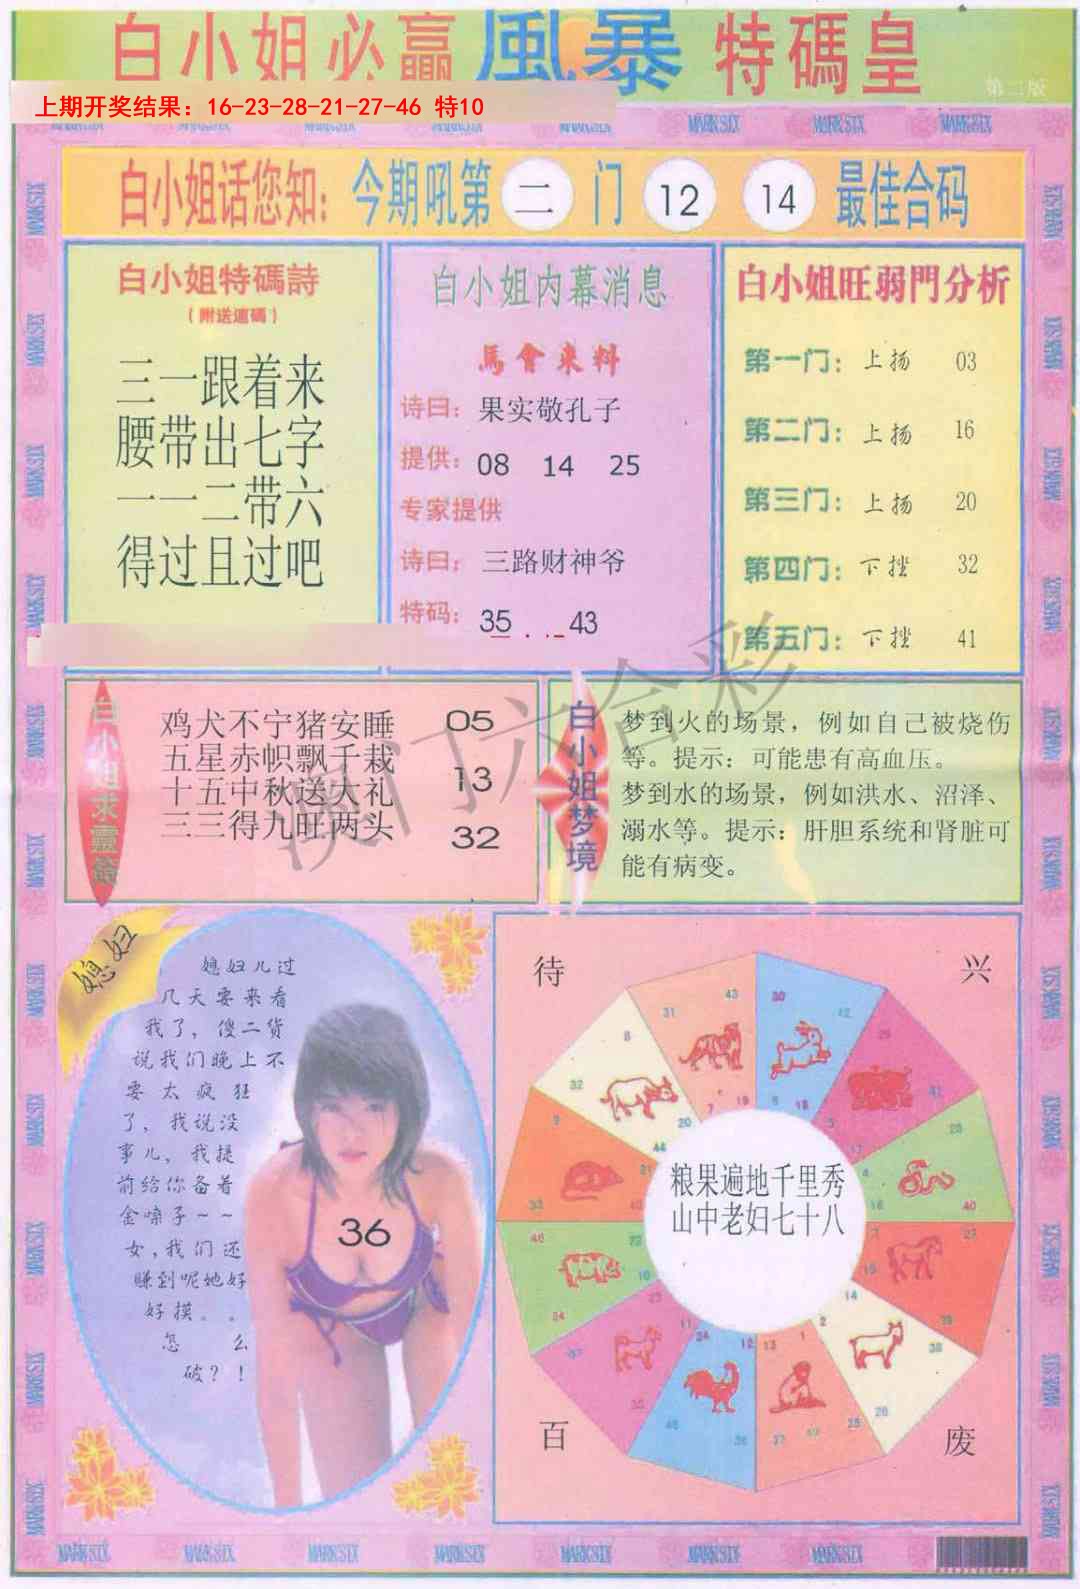 白小姐必赢風暴特碼皇
第二版
上期开奖结果：16-23-28-21-27-46 特10
MARK SIX MARK SIX MARK SIX
白小姐话您知：今期吼第二门 12 14 最佳合码
白小姐特碼詩
（附送連碼）
三一跟着来
腰带出七字
一一二带六
得过且过吧
白小姐内幕消息
馬會来料
诗曰：果实敬孔子
提供：08 14 25
专家提供
诗曰：三路财神爷
特码：35 43
白小姐旺弱門分析
第一门：上扬 03
第二门：上扬 16
第三门：上扬 20
第四门：下挫 32
第五门：下挫 41
白小姐求靈簽
鸡犬不宁猪安睡 05
五星赤帜飘千栽
十五中秋送大礼 13
三三得九旺两头 32
白小姐梦境
梦到火的场景，例如自己被烧伤
等。提示：可能患有高血压。
梦到水的场景，例如洪水、沼泽、
溺水等。提示：肝胆系统和肾脏可
能有病变。
澳门六合彩
媳妇
媳妇儿过
几天要来看
我了，傻二货
说我们晚上不
要太疯狂
了，我说没
事儿，我提
前给你备着
金嗓子~~
女，我们还
赚到呢她好
好摸。。
怎么
破？！
36
待
兴
粮果遍地千里秀
山中老妇七十八
百
废
MARK SIX MARK SIX MARK SIX MARK SIX MARK SIX MARK SIX MARK SIX